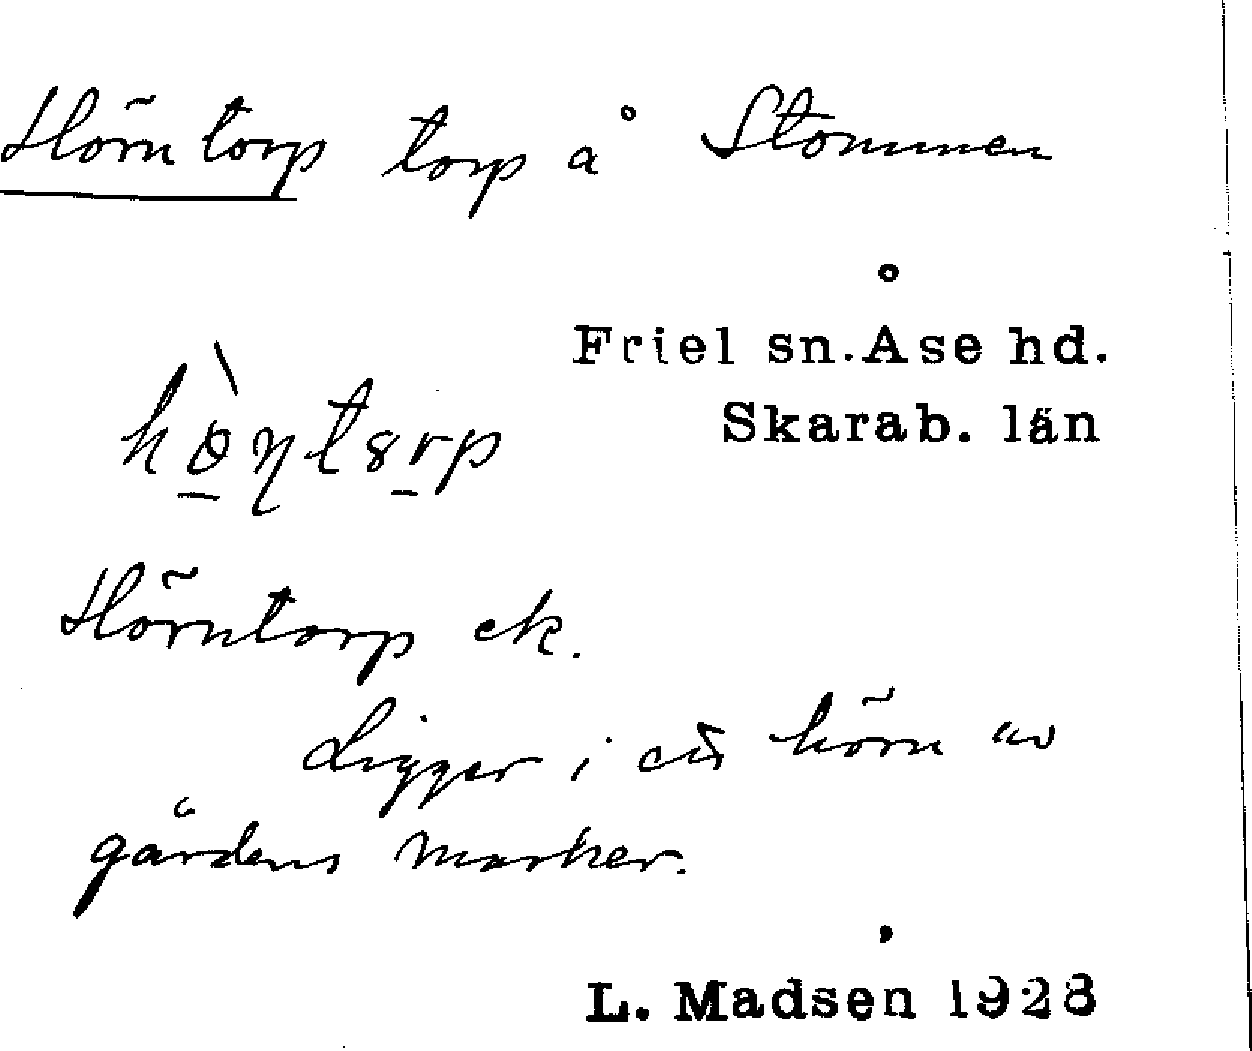 Hörntorp torp å Stommen
Friel sn. Åse hd.
Skarab. län
Hörntorp ek.
Ligger i ett hörn av
gårdens marker.
L. Madsen 1928